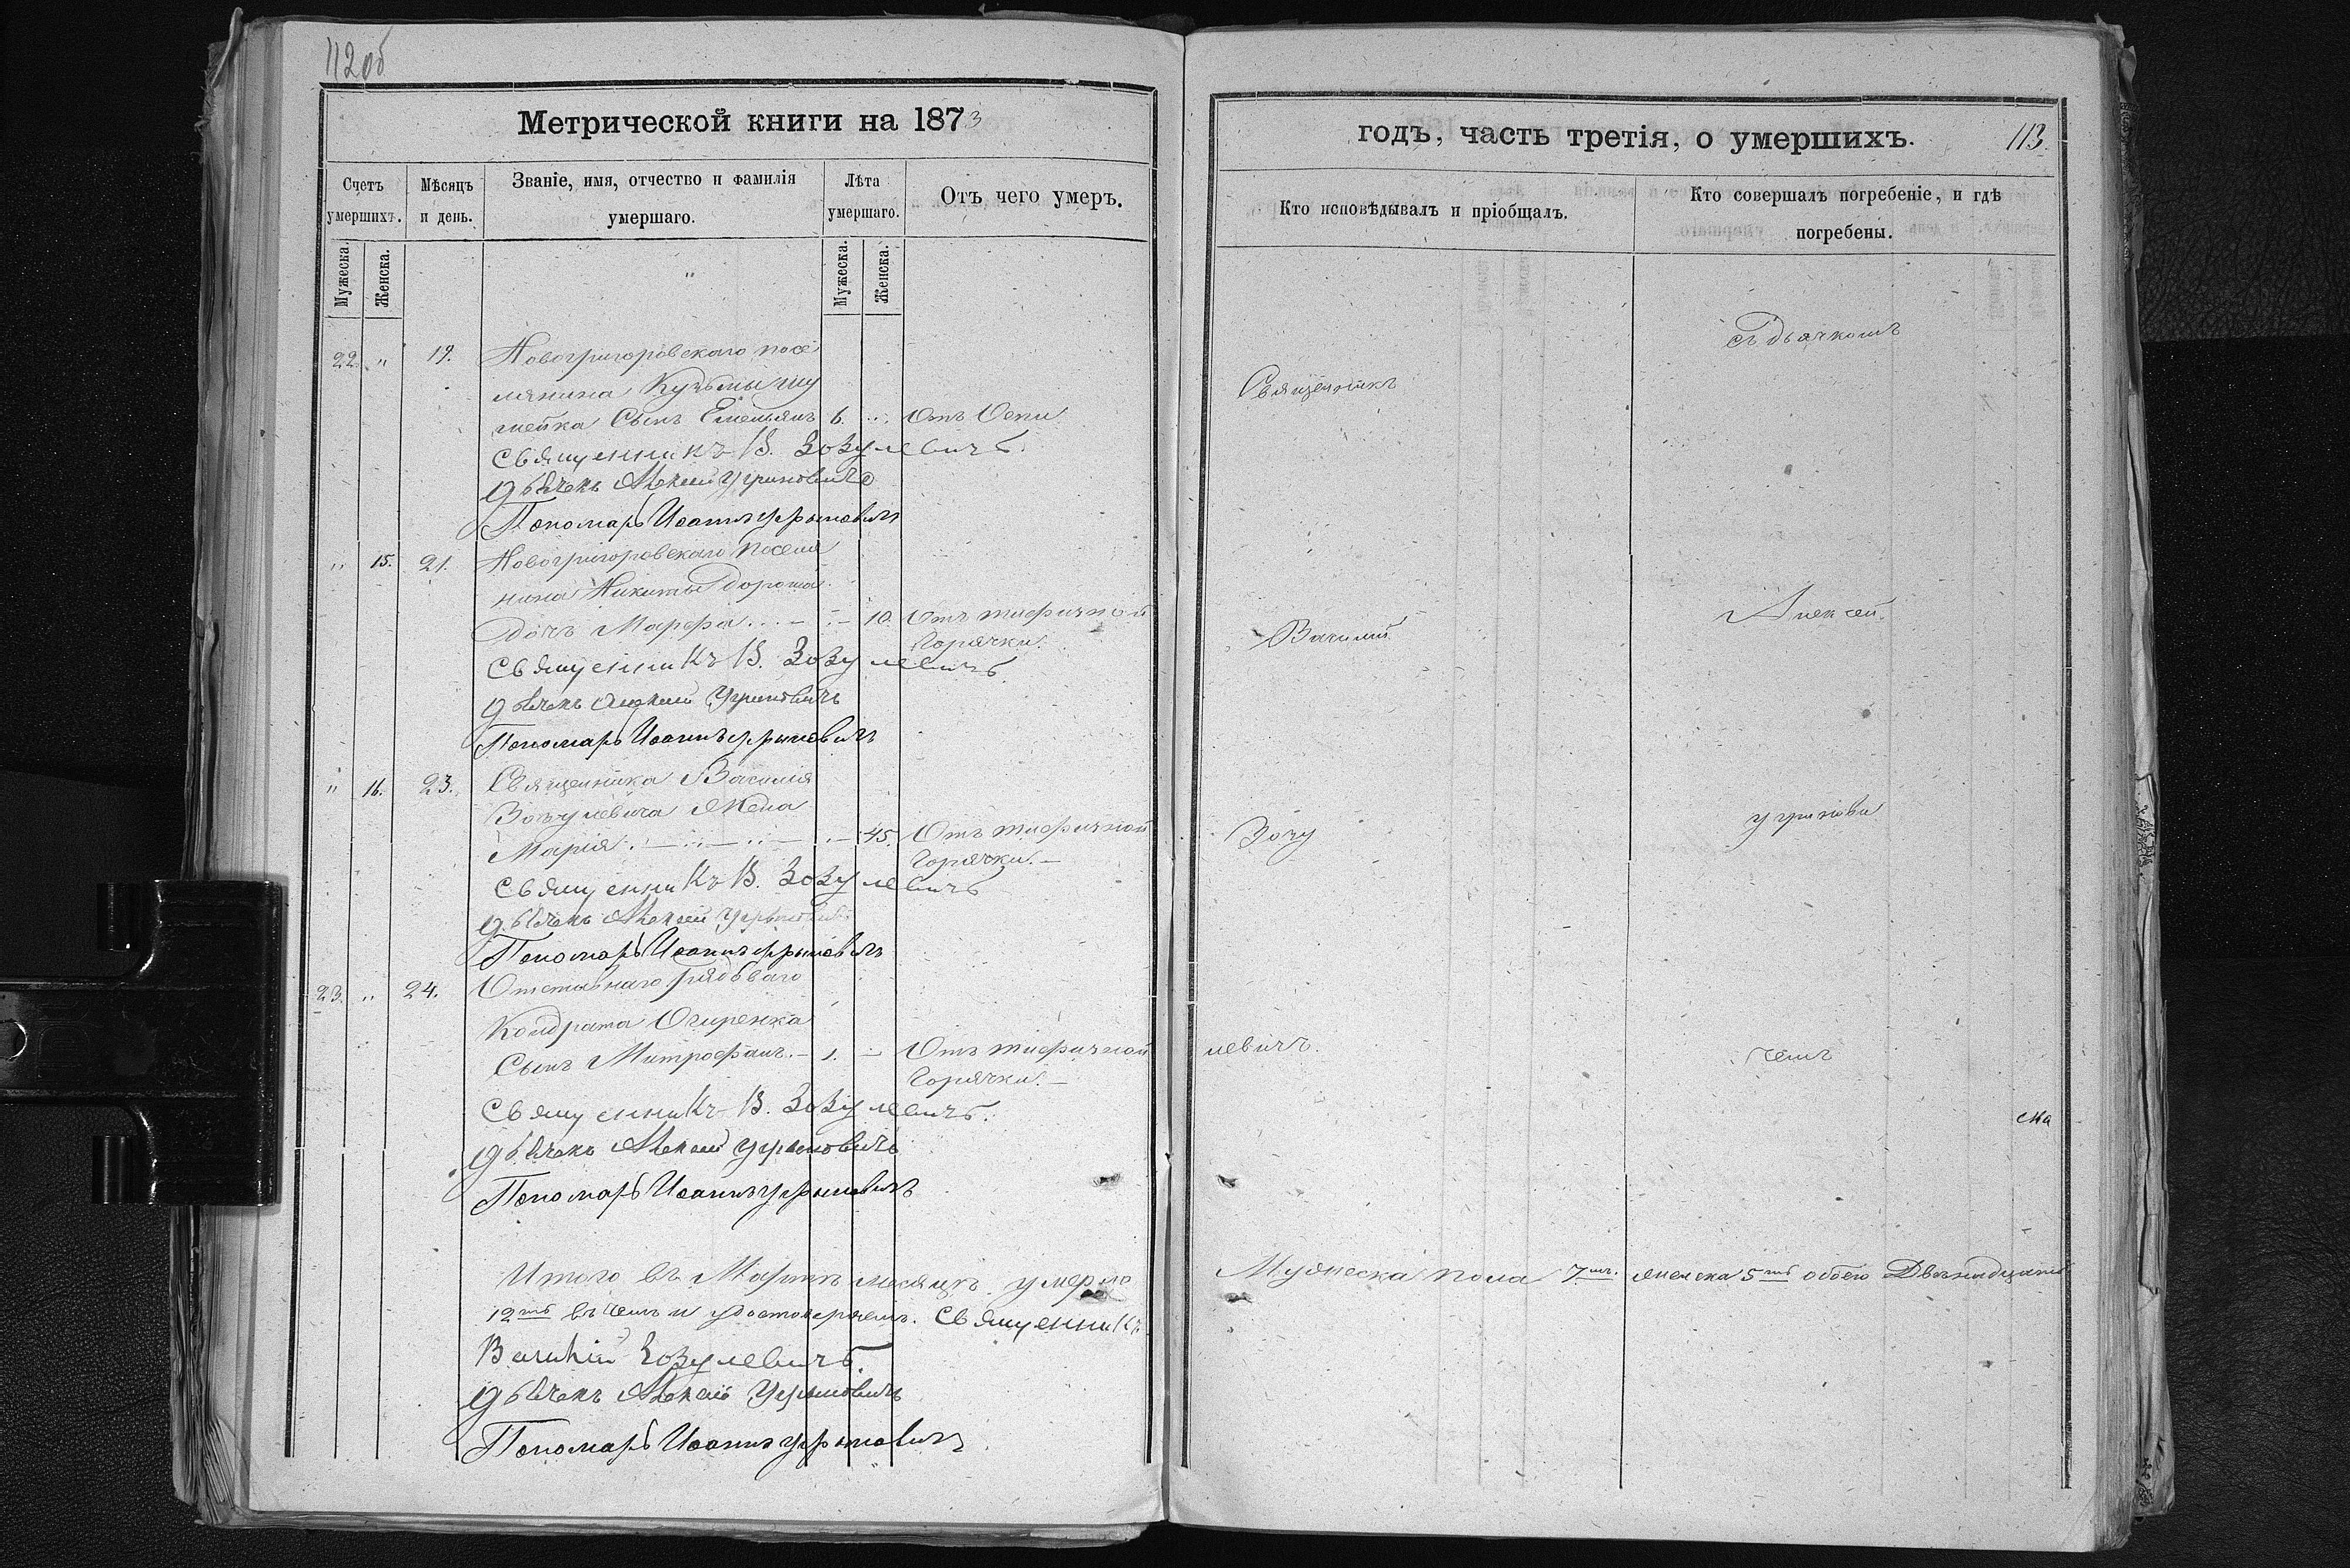 112об
Метрической книги на 1873
Счетъ умершихъ.
Мѣсяцъ и день.
Званіе, имя, отчество и фамилія умершаго.
Лѣта умершаго.
Отъ чего умеръ.
Мужеска.
Женска.
Мужеска.
Женска.
22. " 19. Новогригоровскаго посе
лянина Кузьмы Шу
мейка Сынъ Емельянъ 6. Отъ Оспи
Священникъ В. Зозулевичъ.
Дьячекъ Алексей Угриновичъ
Пономарь Иоаннъ Угрыновичъ
" 15. 21. Новогригоровскаго поселя
нина Никиты Дороша
дочъ Марфа 10. Отъ тифичной
Горячки.
Священникъ В. Зозулевичъ
Дьячекъ Алексей Угриновичъ
Пономарь Иоаннъ Угрыновичъ
" 16. 23. Священника Василія
Зозулевича Жена
Марія 45. Отъ тифичной
Горячки.
Священникъ В. Зозулевичъ
Дьячекъ Алексей Угрыновичъ
Пономарь Иоаннъ Угрыновичъ
23. " 24. Отставнаго рядоваго
Кондрата Огиренка
Сынъ Митрофанъ 1. Отъ тифичной
Горячки.
Священникъ В. Зозулевичъ.
Дьячекъ Алексей Угрыновичъ
Пономарь Иоаннъ Угрыновичъ
Итого въ Мартѣ месяцѣ умерло
12ть въ чемъ и удостоверяемъ. Священникъ
Василій Зозулевичъ.
Дьячекъ Алексей Угрыновичъ
Пономарь Иоаннъ Угрыновичъ
годъ, часть третія, о умершихъ.
113.
Кто исповѣдывалъ и пріобщалъ.
Кто совершалъ погребеніе, и гдѣ погребены.
съ дьячкомъ
Священникъ
Алексей
Василий
Угринови
Зозу
левичъ.
чемъ
Мужеска пола 7мъ. женска 5ть обоего Двенадцать